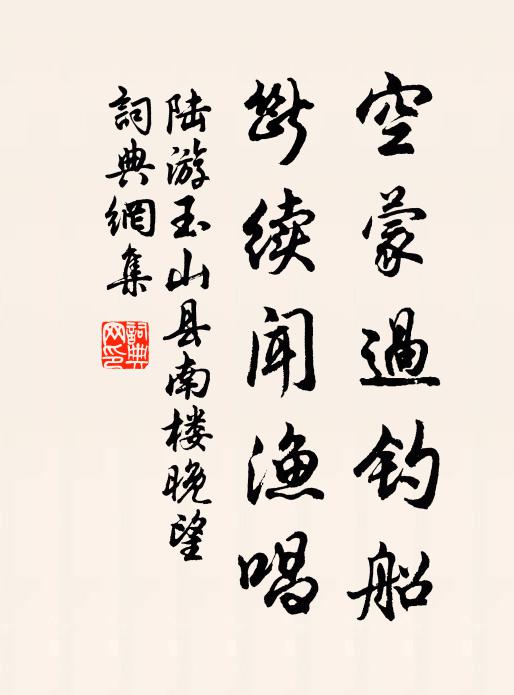 空蒙過钓船
斷续闻渔唱
陆游玉山县南楼晚望
詞典網集
詞典网印